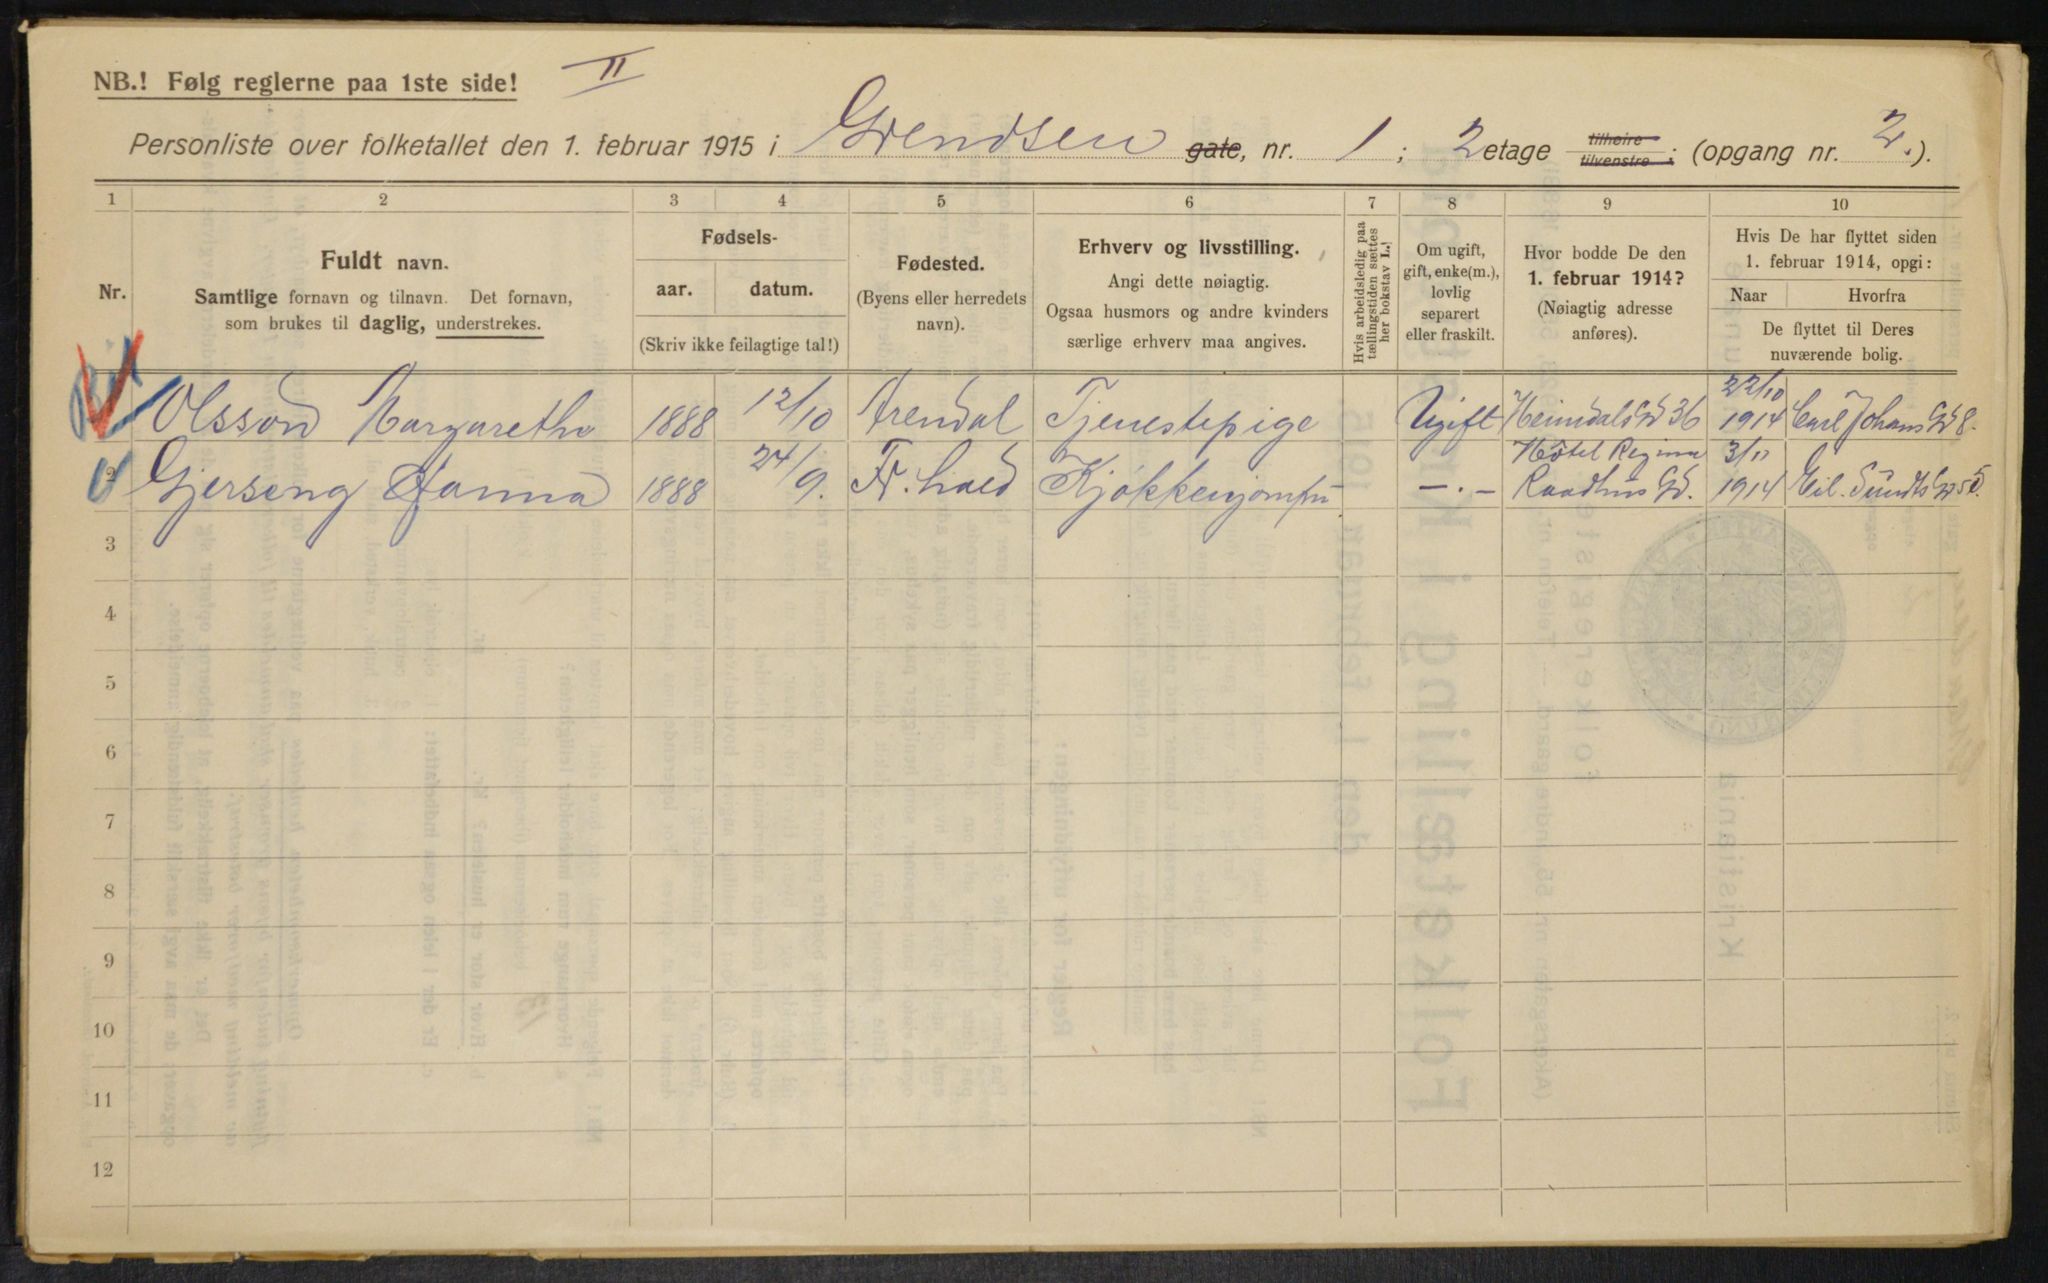 NB.! Følg reglerne paa 1ste side! II
Personliste over folketallet den 1. februar 1915 i Grendsen gate, nr. 1; 2 etage tilhøire tilvenstre; (opgang nr. 2.).
1 2 3 4 5 6 7 8 9 10
Nr.
Fuldt navn.
Samtlige fornavn og tilnavn. Det fornavn,
som brukes til daglig, understrekes.
Fødsels-
aar. datum.
(Skriv ikke feilagtige tal!)
Fødested.
(Byens eller herredets
navn).
Erhverv og livsstilling.
Angi dette nøiagtig.
Ogsaa husmors og andre kvinders
særlige erhverv maa angives.
Hvis arbeidsledig paa
tællingstiden sættes
her bokstav L.!
Om ugift,
gift, enke(m.),
lovlig
separert
eller fraskilt.
Hvor bodde De den
1. februar 1914?
(Nøiagtig adresse
anføres).
Hvis De har flyttet siden
1. februar 1914, opgi:
Naar Hvorfra
De flyttet til Deres
nuværende bolig.
Olsson Margarethe 1888 12/10 Arendal Tjenestepige Ugift Heimdals Gd 36 22/10 1914 Carl Johans Gd 8.
2 Gjerseng Hanna 1888 24/9. Fr. hald Kjøkkenjomfru —.— Hôtel Regina Raadhus Gd. 3/11 1914 Eil. Sündts Gd 50.
3
4
5
6
7
8
9
10
11
12